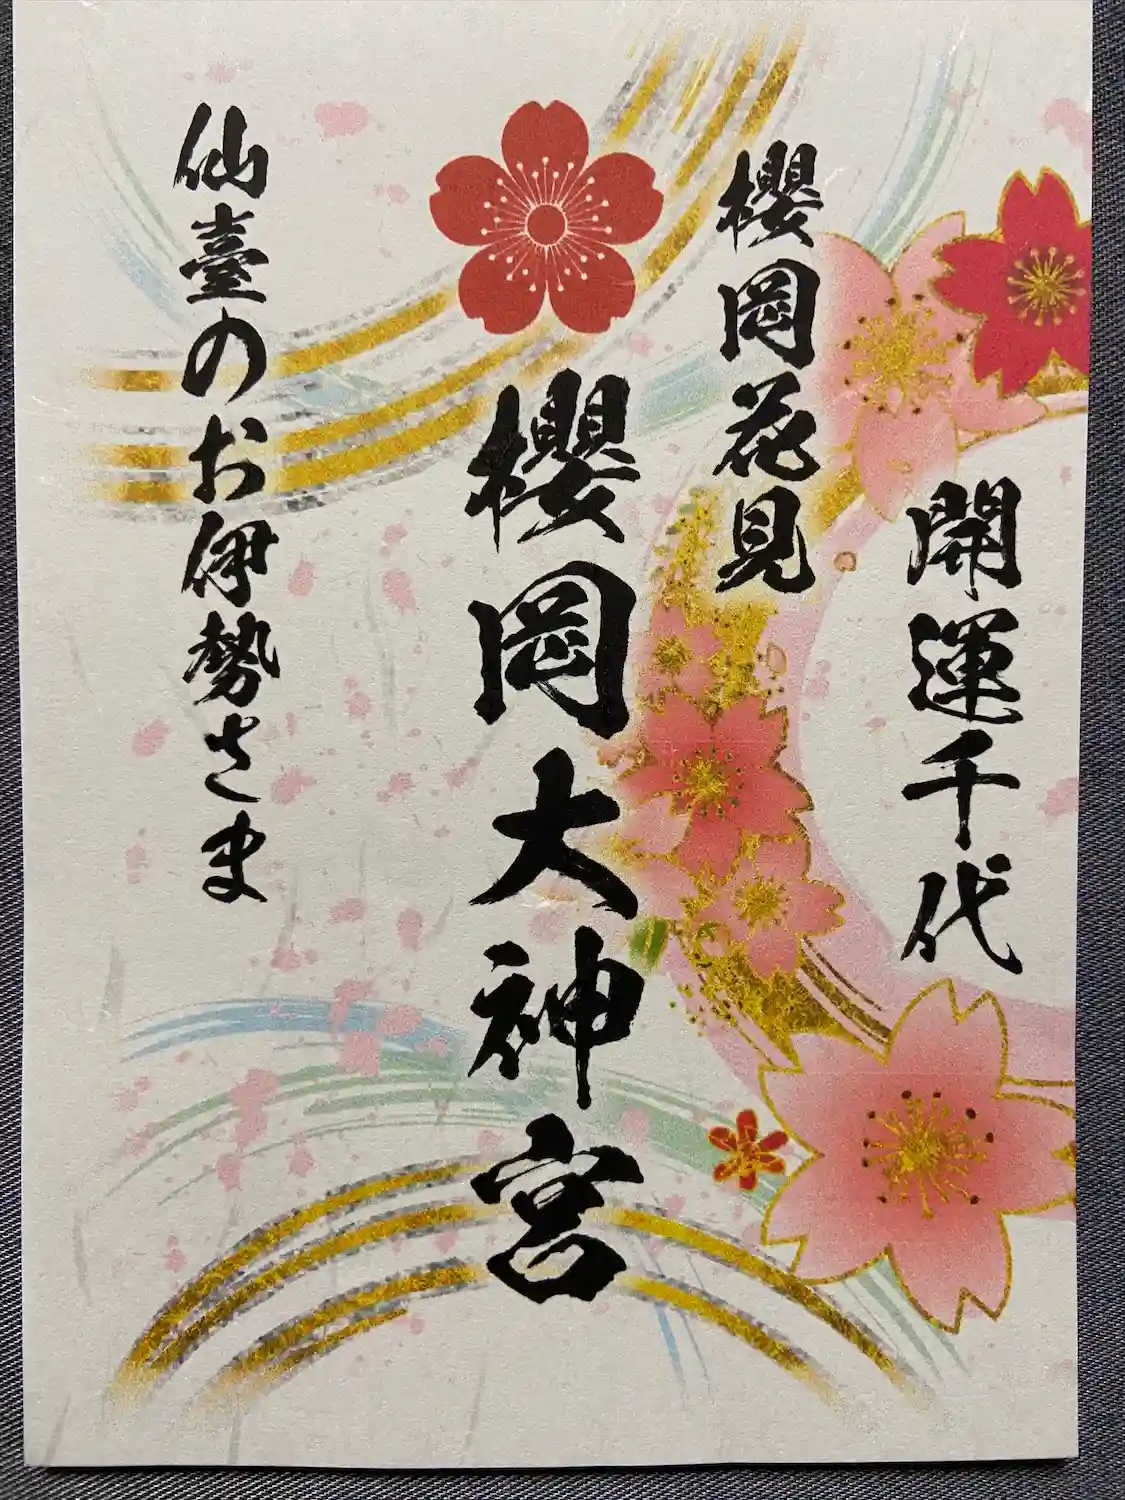 開運千代
櫻岡花見
櫻岡大神宮
仙臺のお伊勢さま